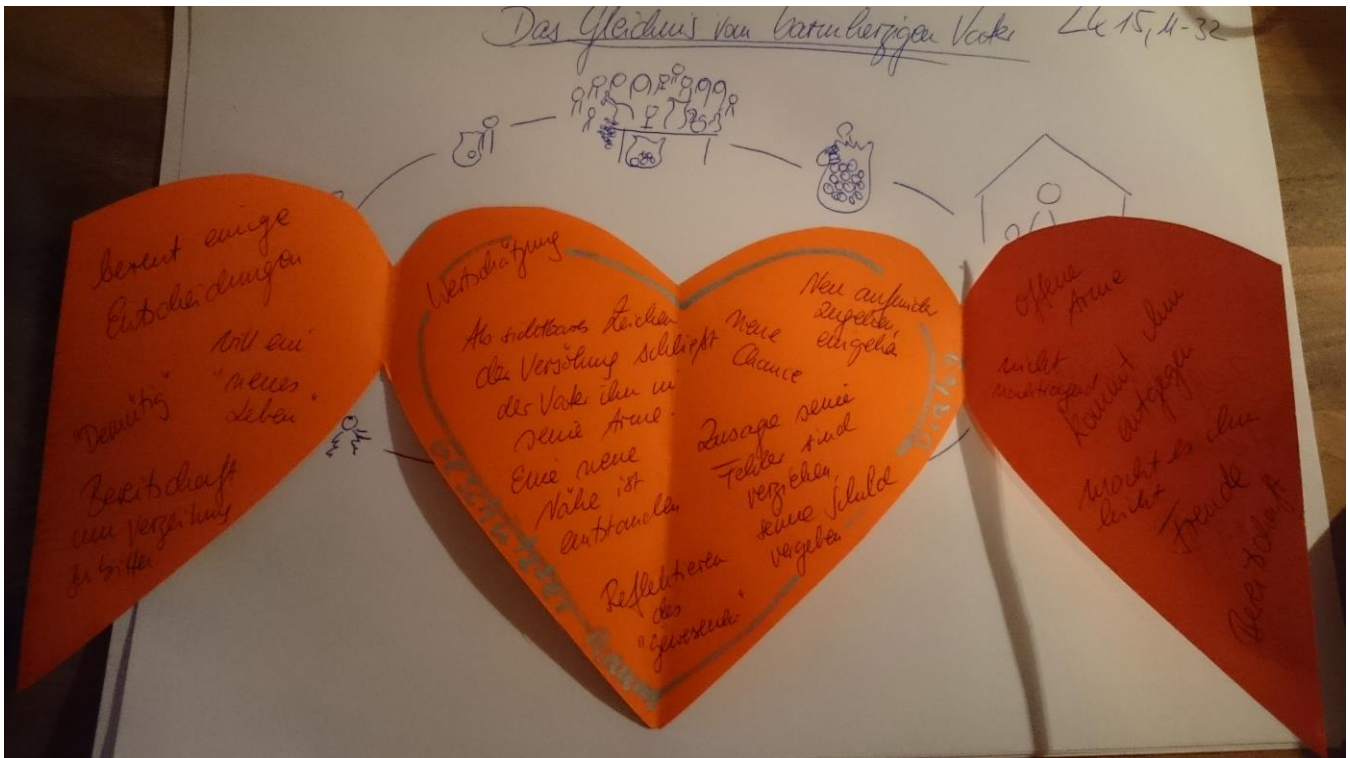 Das Gleichnis vom barmherzigen Vater Lk 15, 11-32
bereut einige
Entscheidungen
will ein
"neues
Leben"
"Demütig"
Bereitschaft
um Verzeihung
zu bitten
Wertschätzung
Als sichtbares Zeichen
der Versöhnung schließt
der Vater ihn in
seine Arme.
Eine neue
Nähe ist
entstanden
Reflektieren
des
"Gewesenen"
Neue
Chance
Neu aufeinander
zugehen,
eingehen
Zusage seine
Fehler sind
verziehen,
seine Schuld
vergeben
Geschützter Raum
Dialog
offene
Arme
nicht
nachtragend
kommt ihm
entgegen
macht es ihm
leicht
Freude
Bereitschaft